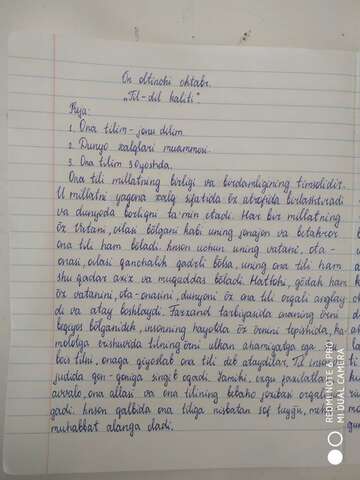 On oltinchi oktabr.
"Til-dil kaliti".
Reja:
1. Ona tilim-jonu dilim.
2. Dunyo xalqlari muammosi.
3. Ona tilim ziyoshda.
Ona tili millatning borligi va birdamligining timsolidir.
U millatni yagona xalq sifatida öz atrofida birlashtiradi
va dunyoda borligni ta'min etadi. Har bir millatning
öz Vatani, oilasi bölgani kabi uning jonajon va betakror
ona tili ham böladi. Inson uchun uning vatani, ota-
onasi, oilasi qanchalik qadrli bölsa, uning ona tili ham
shu qadar aziz va muqaddas böladi. Hattoki, gödak ham
öz vatanini, ota-onasini, dunyoni öz ona tili orqali anglay-
di va atay boshlaydi. Farzand tarbiyasida onaning örni
beqiyos bölganidek, insonning hayotda öz örnini topishida, ka-
molotga erishuvida tilning örni ulkan ahamiyatga ega. Shu
bois tilni, onaga qiyoslab ona tili deb ataydilar. Til inson vu-
judida qon-qoniga singib oqadi. Samiki, ezgu fazilatlar
avvalo, ona allasi va ona tilining bebaho jozibasi orqali
qadi. Inson qalbida ona tiliga nisbatan sof tuyğu, mehr
muhabbat alanga oladi.
REDMI NOTE 8 PRO
MI DUAL CAMERA